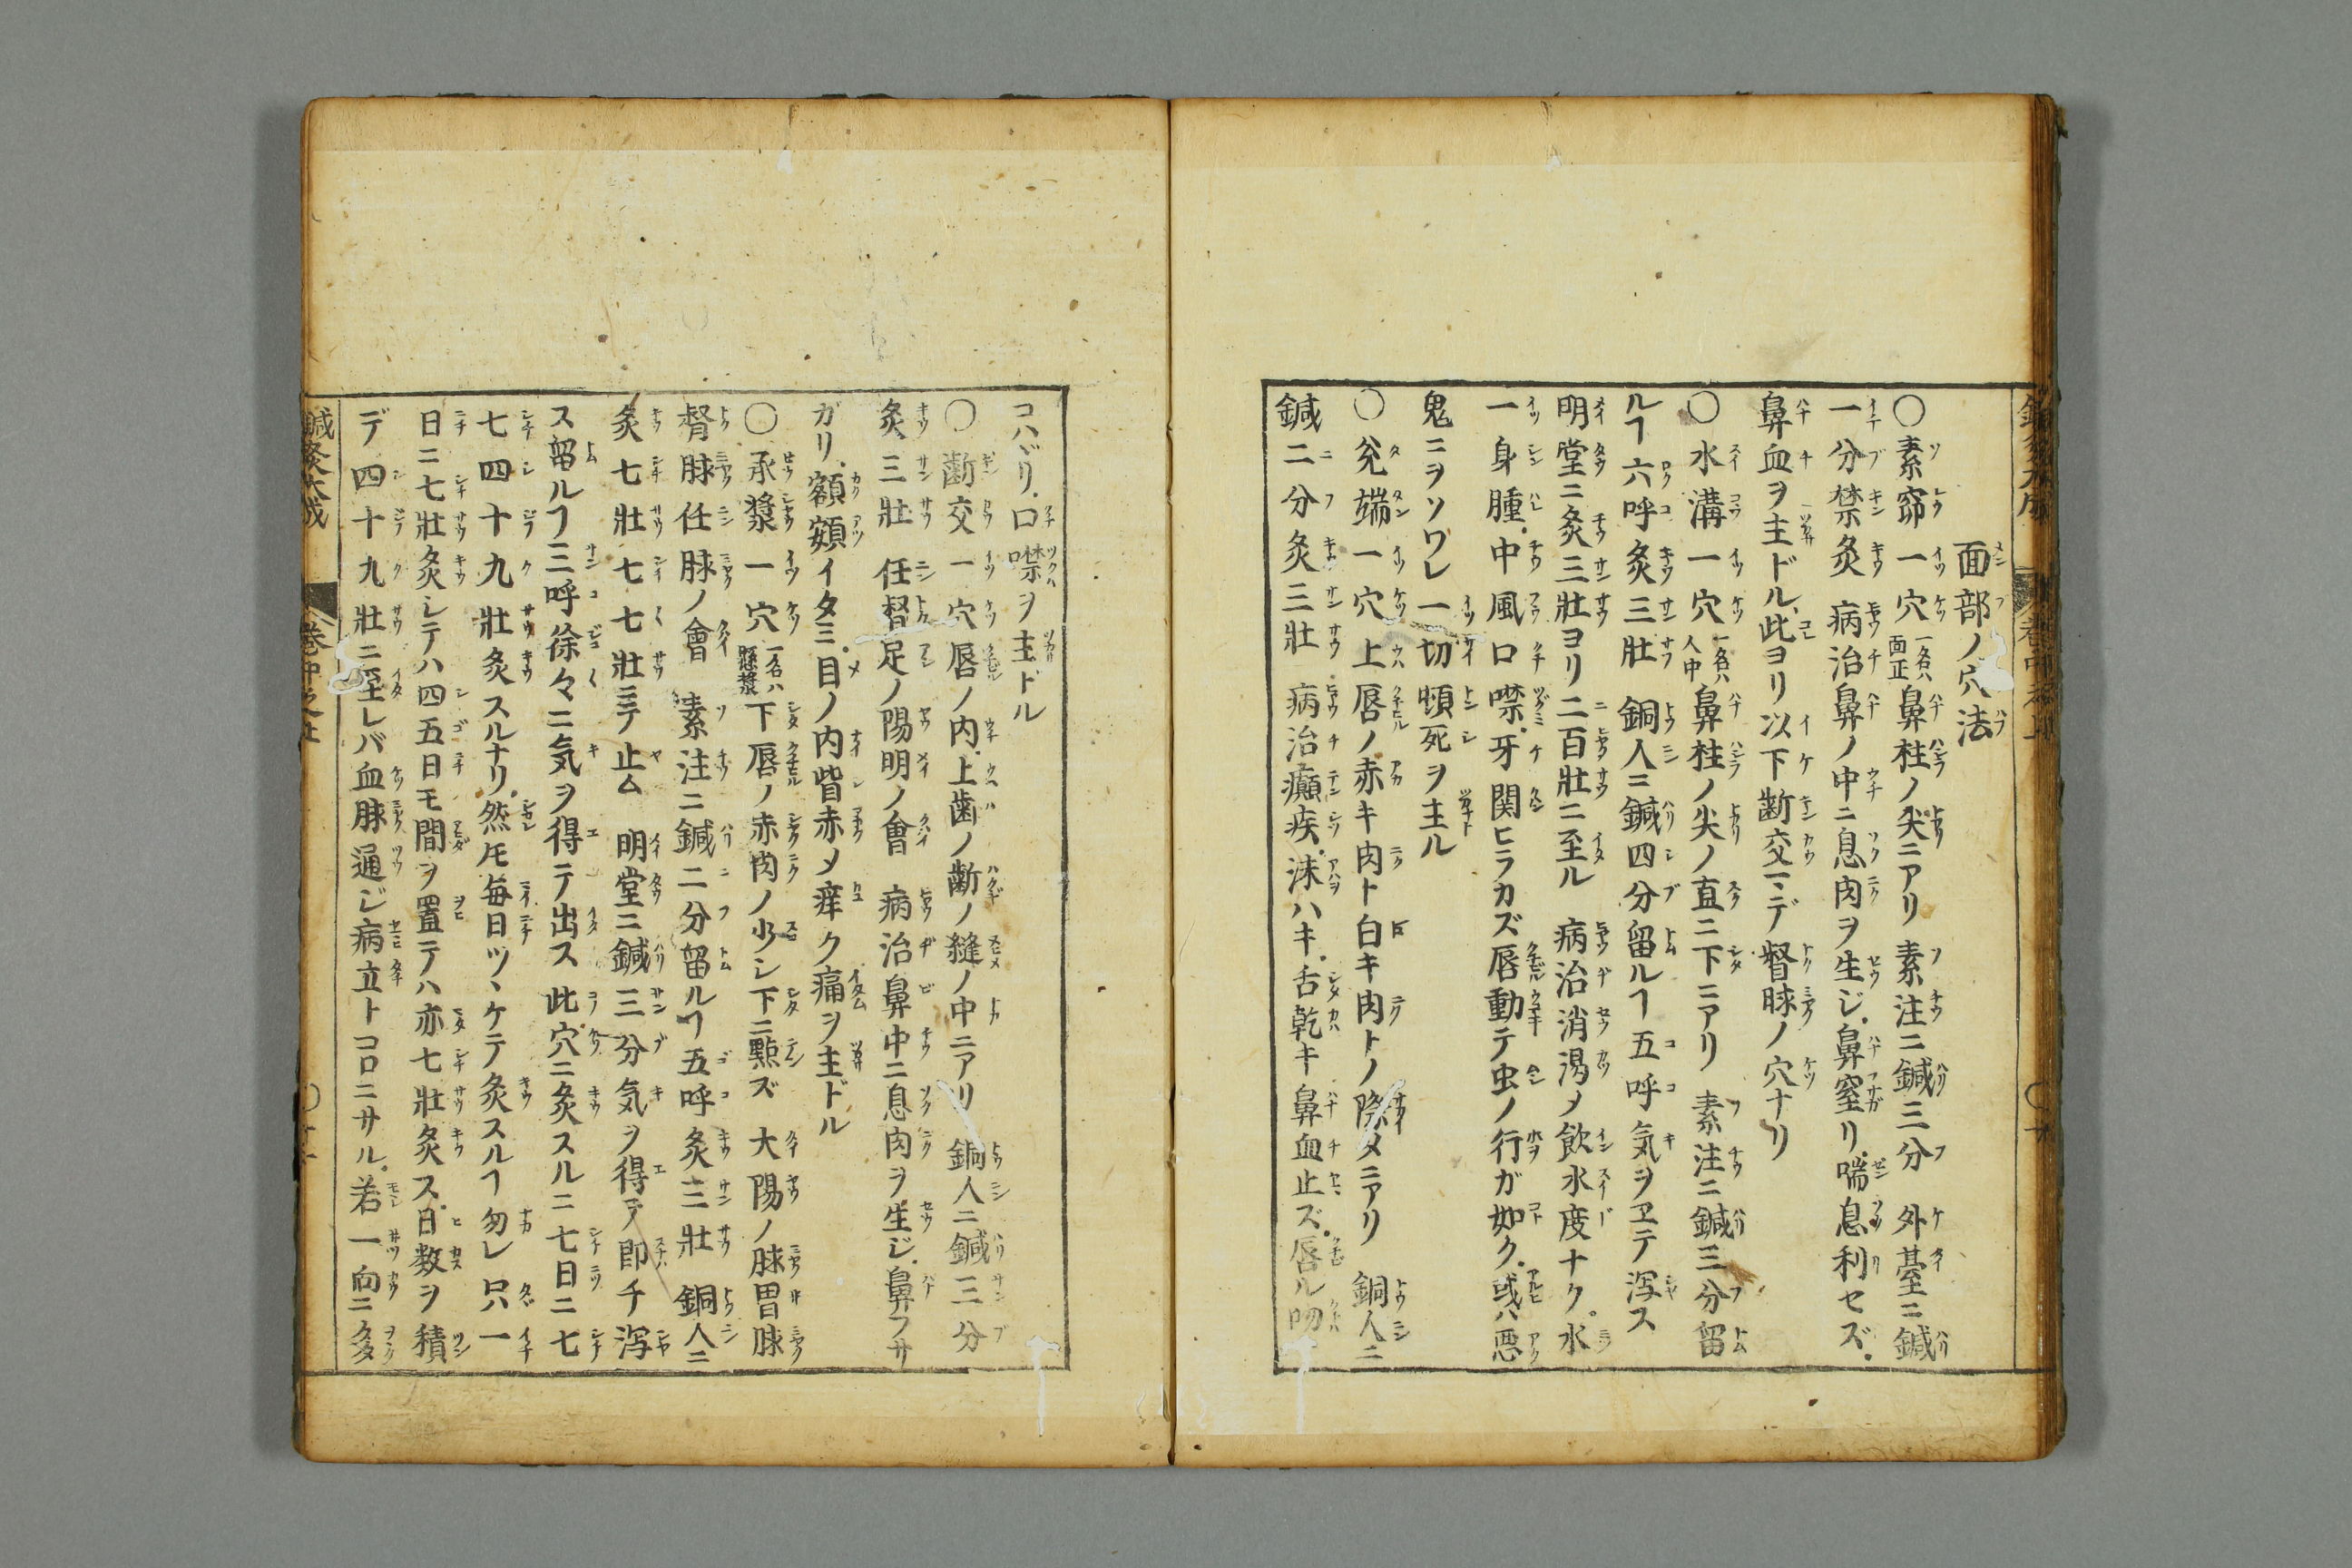 面部ノ穴法
〇素窌一穴一名ハ面正鼻柱ノ尖ニアリ 素注ニ鍼三分 外臺ニ鍼
一分禁灸 病治鼻ノ中ニ息肉ヲ生ジ鼻窒リ喘息利セズ
鼻血ヲ主ドル此ヨリ以下齗交マデ督脉ノ穴ナリ
〇水溝一穴一名ハ人中鼻柱ノ尖ノ直ニ下ニアリ 素注ニ鍼三分留
ルヿ六呼灸三壮 銅人ニ鍼四分留ルヿ五呼気ヲヱテ泻ス
明堂ニ灸三壮ヨリ二百壮ニ至ル 病治消渇メ飲水度ナク水
一身腫中風口噤牙関ヒラカズ唇動テ虫ノ行ガ如ク或ハ悪
鬼ニヲソワレ一切頓死ヲ主ル
〇兊端一穴上唇ノ赤キ肉ト白キ肉トノ際タニアリ 銅人ニ
鍼二分灸三壮 病治癲疾沫ハキ舌乾キ鼻血止ズ唇ル吻
コハバリ口噤ヲ主ドル
〇齗交一穴唇ノ内上歯ノ齗ノ縫ノ中ニアリ 銅人ニ鍼三分
灸三壮 任督足ノ陽明ノ會 病治鼻中ニ息肉ヲ生ジ鼻フサ
ガリ額頞イタミ目ノ内眥赤メ痒ク痛ヲ主ドル
〇承漿一穴一名ハ懸漿下唇ノ赤肉ノ少シ下ニ㸃ズ 大陽ノ脉胃脉
督脉任脉ノ會 素注ニ鍼二分留ルヿ五呼灸三壮 銅人ニ
灸七壮七七壮ニテ止ム 明堂ニ鍼三分気ヲ得テ即チ泻
ス留ルヿ三呼徐々ニ気ヲ得テ出ス此穴ニ灸スルニ七日ニ七
七四十九壮灸スルナリ然𪜈毎日ツヽケテ灸スルヿ勿レ只一
日ニ七壮灸シテハ四五日モ間ヲ置テハ亦七壮灸ス日数ヲ積
デ四十九壮ニ至レバ血脉通ジ病立トコロニサル若一向ニ多
鍼灸大成 巻中之上